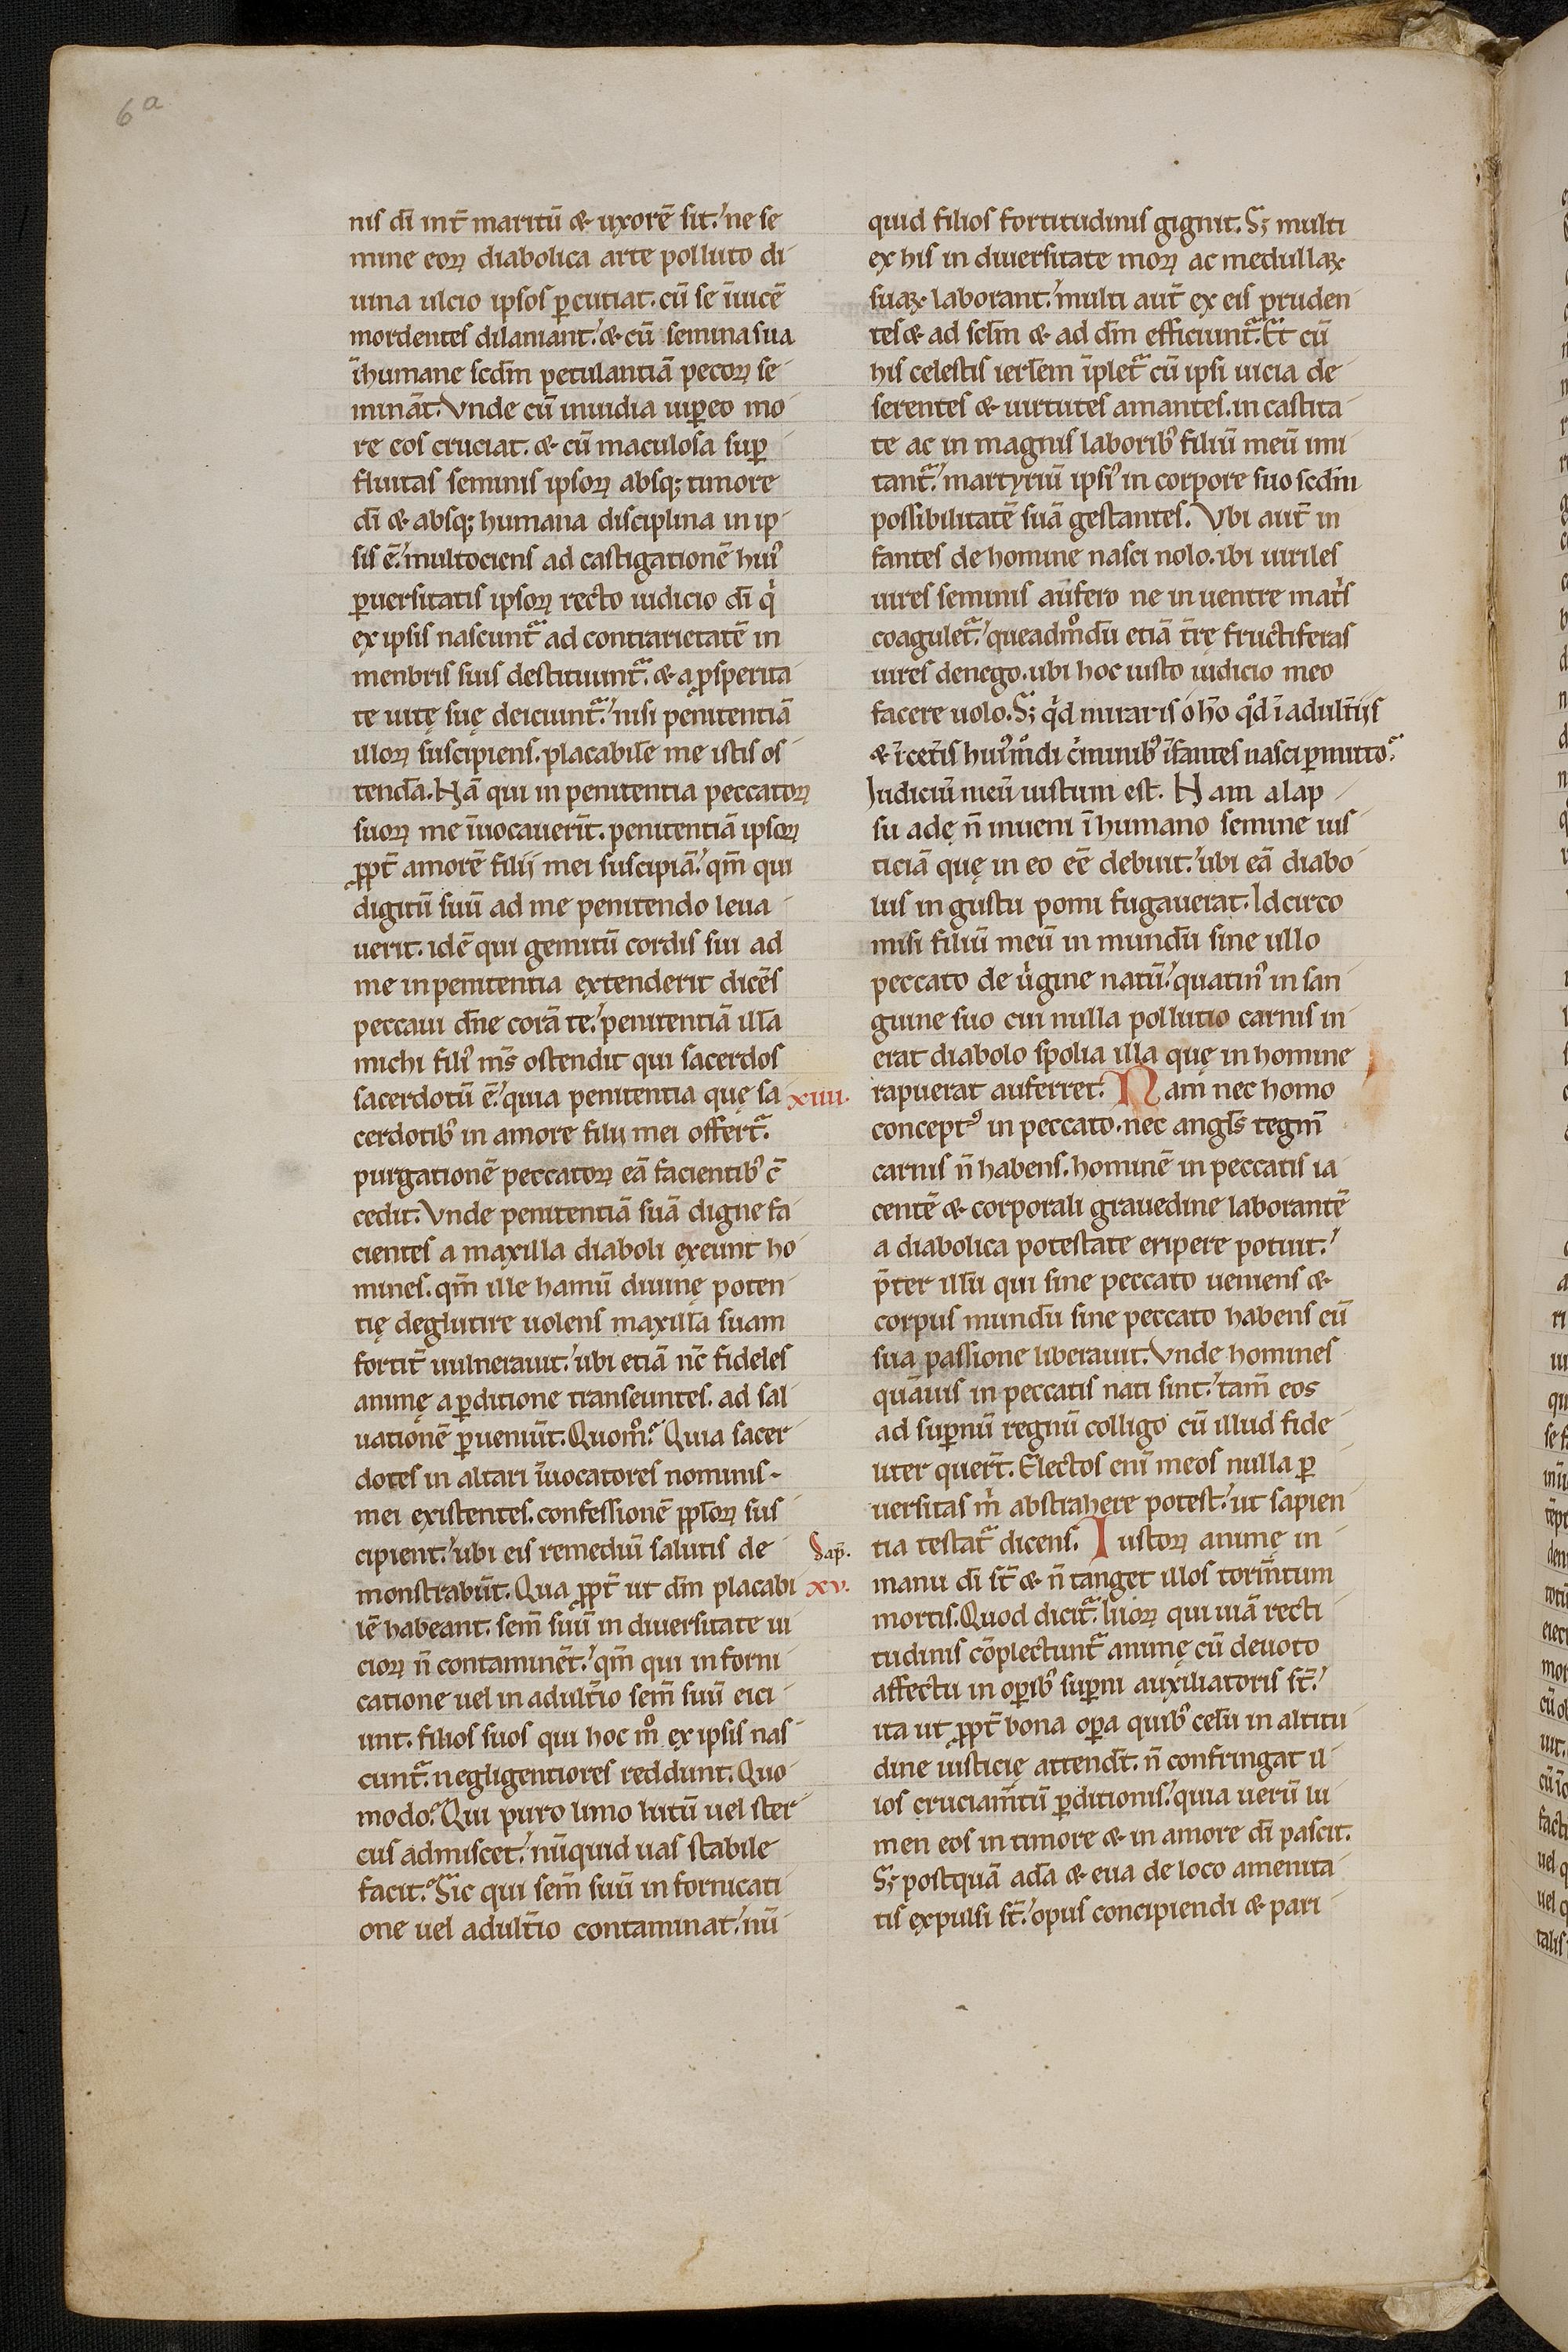 6a
nis dī int̄ maritū & uxorē sit. ne se
mine eoꝝ diabolica arte polluto di
uina ulcio ipsos ꝑcutiat. cū se īuicē
mordentes dilaniant. & cū semina sua
īhumane scd̄m petulantiā pecoꝝ se
mināt. Vnde cū inuidia uiꝑeo mo
re eos cruciat. & cū maculosa suꝑ
fluitas seminis ipsoꝝ absqꝫ timore
dī & absqꝫ humana disciplina in ip
sis ē. multociens ad castigationē huiꝰ
ꝑuersitatis ipsoꝝ recto iudicio dī qͥ
ex ipsis nascunt᷑ ad contrarietatē in
menbris suis destituunt᷑. & a ꝓsperita
te uitę suę deiciunt᷑. nisi penitentiā
illoꝝ suscipiens. placabilē me istis os
tendā. Nā qui in penitentia peccatoꝝ
suoꝝ me īuocauerīt. penitentiā ipsoꝝ
ꝓpt̄ amorē filij mei suscipiā. qm̄ qui
digitū suū ad me penitendo leua
uerit. idē qui gemitū cordis sui ad
me in penitentia extenderit dicēs
peccaui dn̄e corā te. penitentiā illā
michi filiꝰ mſ̄ ostendit qui sacerdos
sacerdotū ē. quia penitentia quę sa
cerdotibꝰ in amore filij mei offert᷑.
purgationē peccatoꝝ eā facientibꝰ c̄
cedit. Vnde penitentiā suā digne fa
cientes a maxilla diaboli exeunt ho
mines. qm̄ ille hamū diuinę poten
tię deglutire uolens maxillā suam
fortit̄ uulnerauit. ubi etiā nc̄ fideles
animę a ꝑditione transeuntes. ad sal
uationē ꝑueniūt. Quomͦ? Quia sacer
dotes in altari īuocatores nominis
mei existentes. confessionē ppl̄oꝝ sus
cipient. ubi eis remediū salutis de
monstrabūt. Qua ꝓpt̄ ut dm̄ placabi
lē habeant. sem̄ suū in diuersitate ui
cioꝝ n̄ contaminēt. qm̄ qui in forni
catione uel in adult̄io sem̄ suū eici
unt. filios suos qui hoc mͦ ex ipsis nas
cunt᷑. negligentiores reddunt. Quo
modo? Qui puro limo lutū uel ster
cus admiscet. nūquid uas stabile
facit? Sic qui sem̄ suū in fornicati
one uel adult̄io contaminat. nū
quid filios fortitudinis gignit. Sꝫ multi
ex his in diuersitate moꝝ ac medullaꝝ
suaꝝ laborant. multi aut̄ ex eis pruden
tes & ad scl̄m & ad dm̄ efficiunt᷑. Et cū
his celestis ierl̄em īplet᷑ cū ipsi uicia de
serentes & uirtutes amantes. in castita
te ac in magnis laboribꝰ filiū meū imi
tant᷑. martyriū ipsiꝰ in corpore suo scd̄m
possibilitatē suā gestantes. Vbi aut̄ in
fantes de homine nasci nolo. ibi uiriles
uires seminis aufero ne in uentre mat̄s
coagulet᷑. queadmͦdū etiā t̄rę fructiferas
uires denego. ubi hoc iusto iudicio meo
facere uolo. Sꝫ qͥd miraris o hō qͦd ī adult̄ijs
& ī cet̄is huiꝰmͦdi cͥminibꝰ īfantes nasci ꝑmitto?
Iudiciū meū iustum est. Nam a lap
su adę n̄ inueni ī humano semine ius
ticiā quę in eo eē debuit. ubi eā diabo
lus in gustu pomi fugauerat. Idcirco
misi filiū meū in mundū sine ullo
peccato de uͥgine natū. quatinꝰ in san
guine suo cui nulla pollutio carnis in
erat diabolo spolia illa quę in homine
xiiii. rapuerat auferret. Nam nec homo
conceptꝰ in peccato. nec angl̄s tegm̄
carnis n̄ habens. hominē in peccatis ia
centē & corporali grauedine laborantē
a diabolica potestate eripere potuit.
p̄ter illū qui sine peccato ueniens &
corpus mundū sine peccato habens eū
sua passione liberauit. Vnde homines
quāuis in peccatis nati sint. tam̄ eos
ad suꝑnū regnū colligo cū illud fide
liter quer̄t. Electos enī meos nulla ꝑ
uersitas mͥ abstrahere potest. ut sapien
Sap̄. tia testat᷑ dicens. Iustoꝝ animę in
xv. manu dī st̄ & n̄ tanget illos torm̄tum
mortis. Quod dicit᷑. Iuꝝ qui uiā recti
tudinis cōplectunt᷑ animę cū deuoto
affectu in oꝑibꝰ suꝑni auxiliatoris st̄.
ita ut ꝓpt̄ bona oꝑa quibꝰ celū in altitu
dine iusticię attendūt. n̄ confringat il
los cruciam̄tū ꝑditionis. quia uerū lu
men eos in timore & in amore dī pascit.
Sꝫ postquā adā & eua de loco amenita
tis expulsi st̄. opus concipiendi & pari